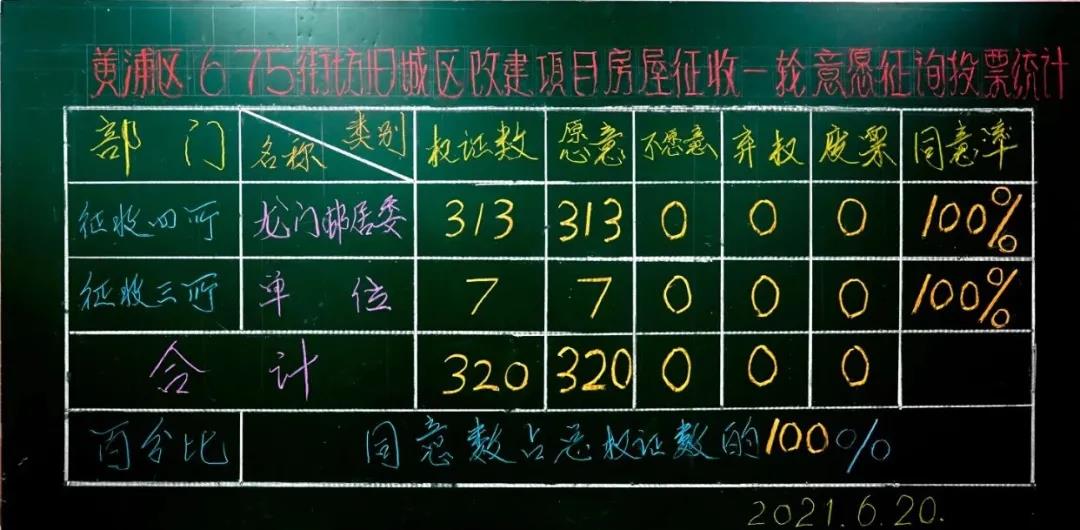 黄浦区675街坊旧城区改建项目房屋征收一轮意愿征询投票统计
部门 名称 类别 权证数 愿意 不愿意 弃权 废票 同意率
征收四所 龙门邨居委 313 313 0 0 0 100%
征收三所 单位 7 7 0 0 0 100%
合计 320 320 0 0 0
百分比 同意数占总权证数的100%
2021.6.20.